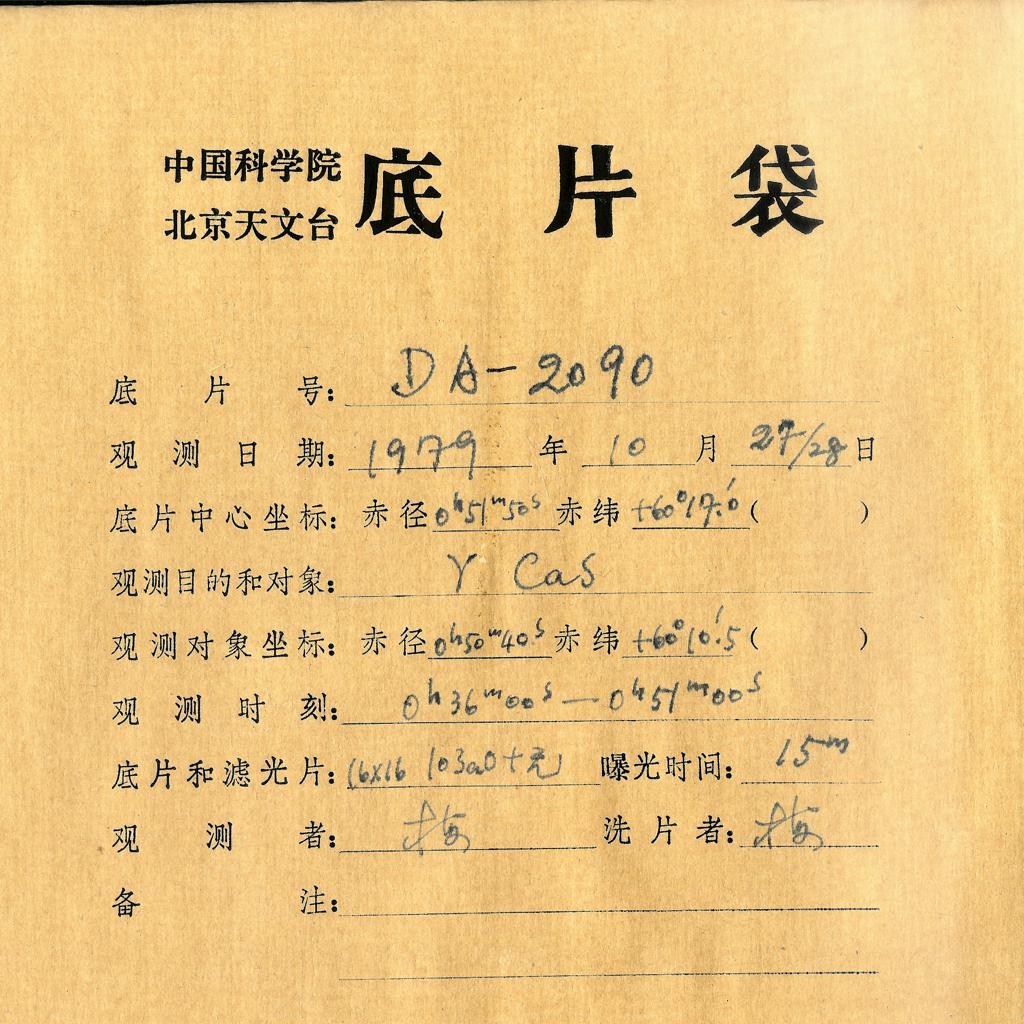 中国科学院
北京天文台
底片袋
底片号: DA-2090
观测日期: 1979 年 10 月 27/28 日
底片中心坐标: 赤径 0h51m50s 赤纬 +60°17.'0 ( )
观测目的和对象: γ Cas
观测对象坐标: 赤径 0h50m40s 赤纬 +60°10.'5 ( )
观测时刻: 0h36m00s — 0h51m00s
底片和滤光片: 16x16 103aO+无 曝光时间: 15m
观测者: 梅 洗片者: 梅
备注: